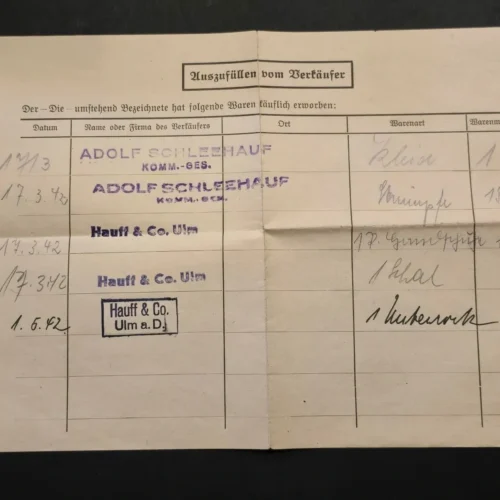 Auszufüllen vom Verkäufer
Der – Die – umstehend Bezeichnete hat folgende Waren käuflich erworben:
Datum Name oder Firma des Verkäufers Ort Warenart
17/3 ADOLF SCHLEEHAUF KOMM.-GES. 1
17.3.42 ADOLF SCHLEEHAUF KOMM.-GES. Strümpfe
17.3.42 Hauff & Co. Ulm
17.3.42 Hauff & Co. Ulm 1 Schal
1.6.42 Hauff & Co. Ulm a. D. 1 Unterrock